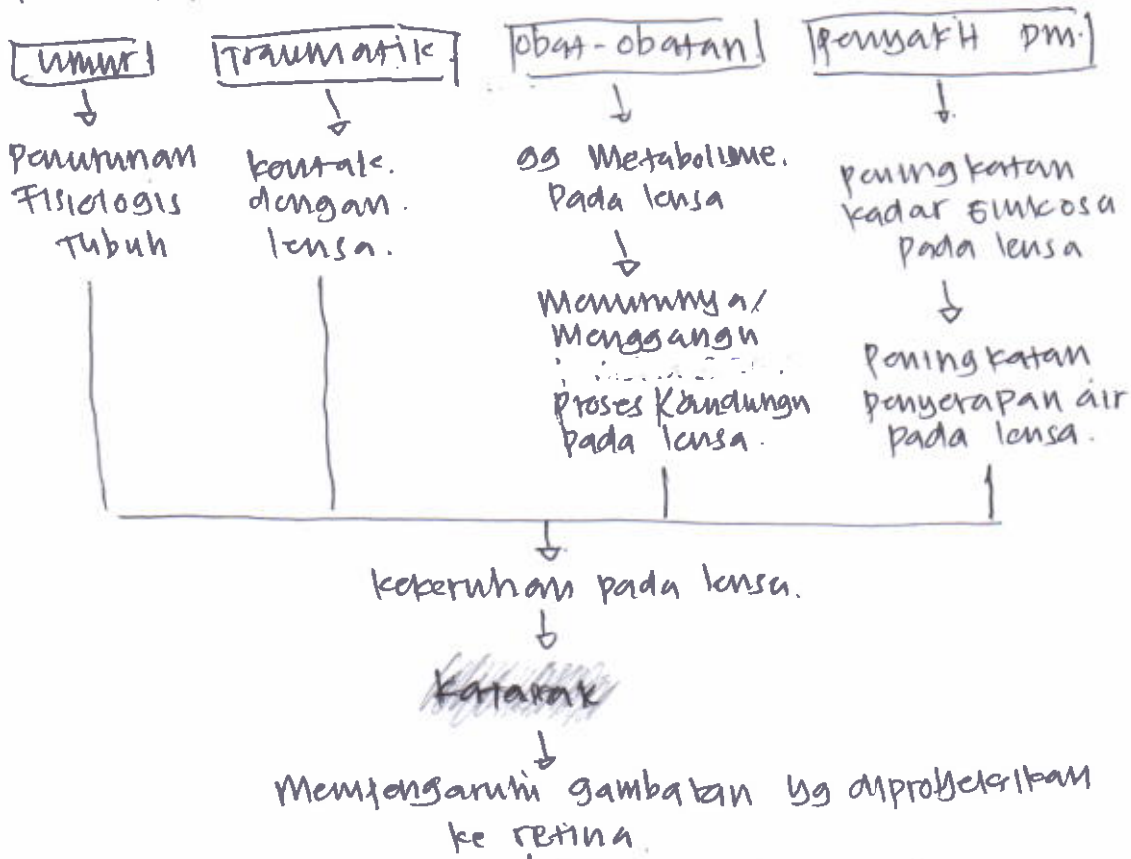 Umur
Traumatik.
Obat-obatan
Penyakit DM.
Penurunan
Fisiologis
Tubuh
kontak.
dengan.
lensa.
gg Metabolisme.
Pada lensa
Menurunnya/
Mengganggu
proses Kandungn
pada lensa.
peningkatan
kadar Glukosa
pada lensa
Peningkatan
penyerapan air
pada lensa.
kekeruhan pada lensa.
Katarak
Mempengaruhi gambaran yg diproyeksikan
ke retina